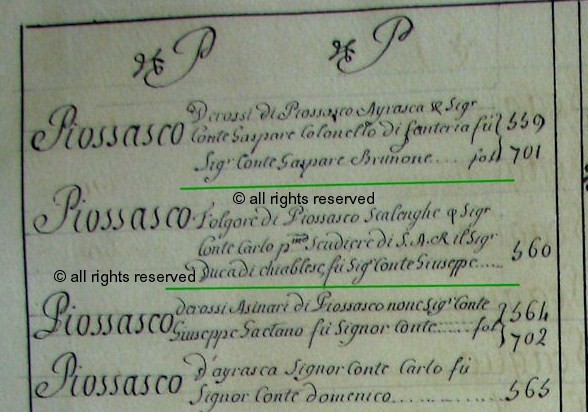 & P & P
Piossasco Derossi di Piossasco Ayrasca & Sigr
Conte Gaspare Colonello di fanteria fù 559
Sigr Conte Gaspare Brunone.... fol 701
© all rights reserved
Piossasco Folgore di Piossasco Scalenghe & Sigr
Conte Carlo pmo Scudiere di S.A.R il Sigr
Duca di chiablese fù Sigr Conte Giuseppe..... 560
© all rights reserved
Piossasco derossi Asinari di Piossasco nonc Sigr Conte 564
Giuseppe Gaetano fù Signor Conte...... fol 702
Piossasco D'ayrasca Signor Conte Carlo fù
Signor Conte Domenico.............. 565